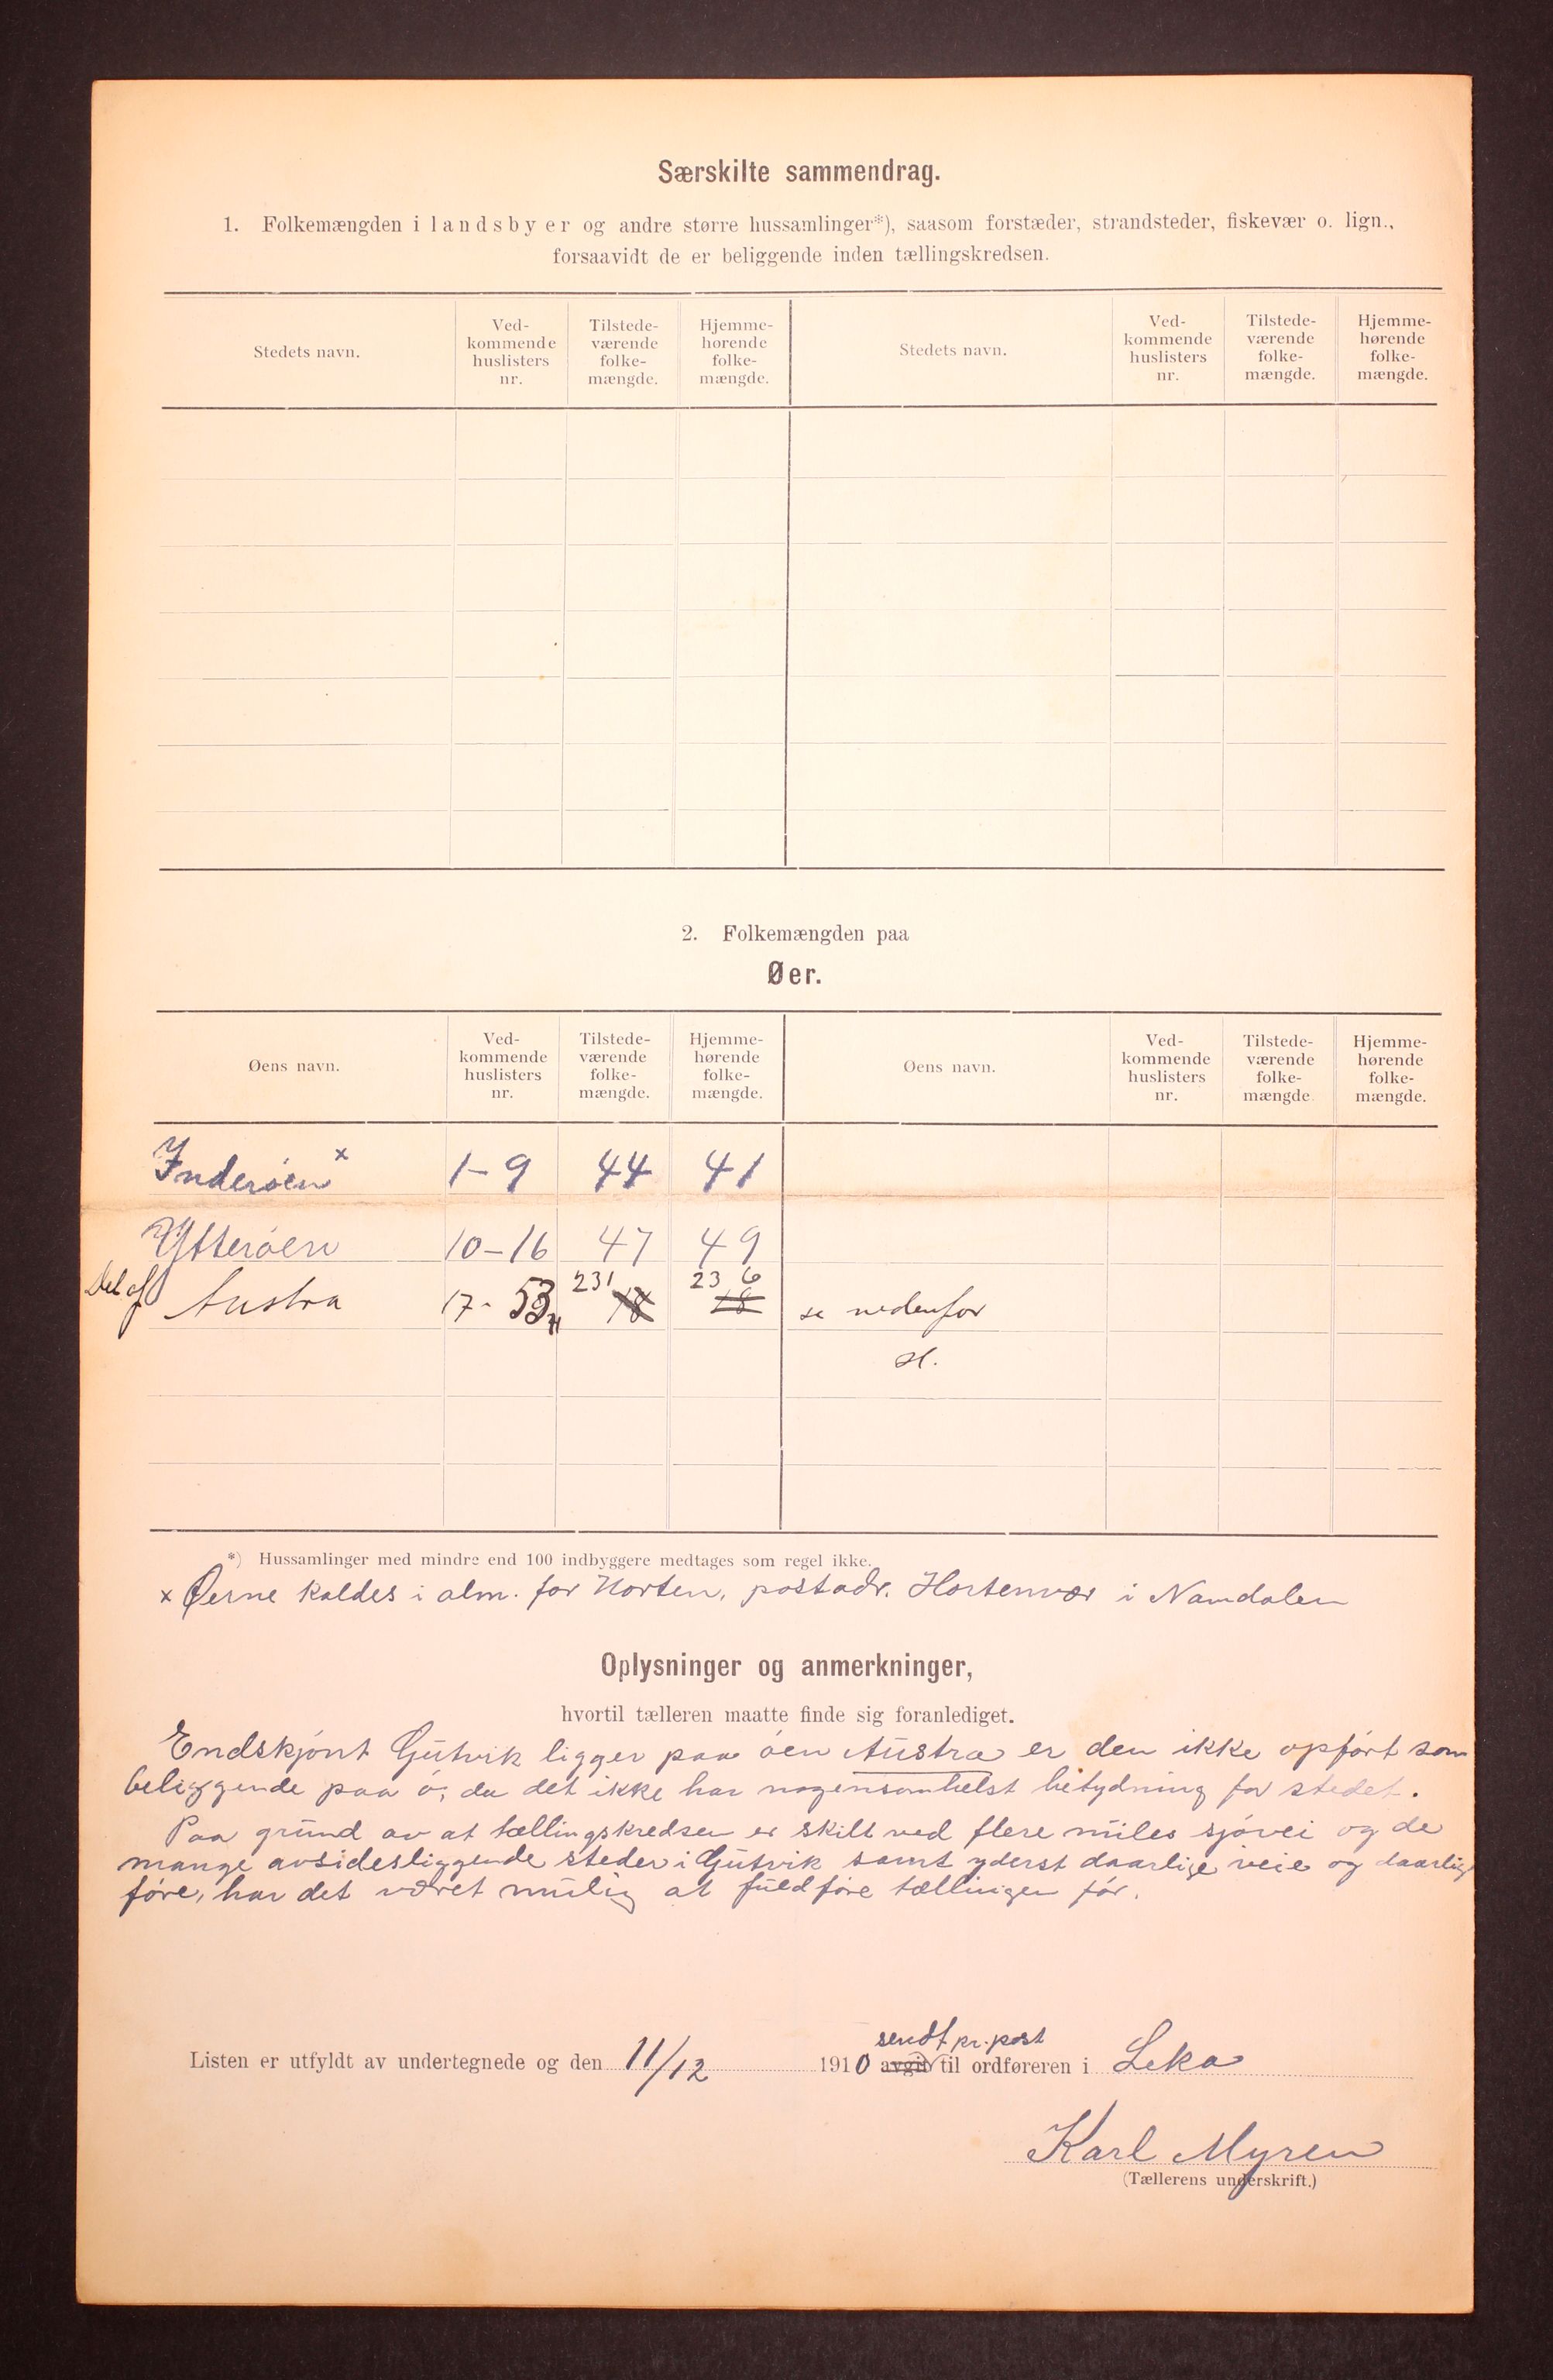 Særskilte sammendrag.
1. Folkemængden i landsbyer og andre større hussamlinger*), saasom forstæder, strandsteder, fiskevær o. lign.,
forsaavidt de er beliggende inden tællingskredsen.
Stedets navn. Ved-kommende huslisters nr. Tilstede-værende folke-mængde. Hjemme-hørende folke-mængde. Stedets navn. Ved-kommende huslisters nr. Tilstede-værende folke-mængde. Hjemme-hørende folke-mængde.
2. Folkemængden paa
Øer.
Øens navn. Ved-kommende huslisters nr. Tilstede-værende folke-mængde. Hjemme-hørende folke-mængde. Øens navn. Ved-kommende huslisters nr. Tilstede-værende folke-mængde Hjemme-hørende folke-mængde.
Inderøen x 1-9 44 41
Ytterøen 10-16 47 49
Del af Austra 17- 53 231 18 236 18 se nedenfor
H.
*) Hussamlinger med mindre end 100 indbyggere medtages som regel ikke.
x Øerne kaldes i alm. for Horten, postadr. Hortenvær i Namdalen
Oplysninger og anmerkninger,
hvortil tælleren maatte finde sig foranlediget.
Endskjønt Gutvik ligger paa øen Austra er den ikke opført som
beliggende paa ø, da det ikke har nogensomhelst betydning for stedet.
Paa grund av at tællingskredsen er skilt ved flere miles sjøvei og de
mange avsidesliggende steder i Gutvik samt yderst daarlige veie og daarlig
føre, har det været mulig at fuldføre tællingen før.
Listen er utfyldt av undertegnede og den 11/12 1910 avgit sendt pr. post til ordføreren i Leka
Karl Myren
(Tællerens underskrift.)